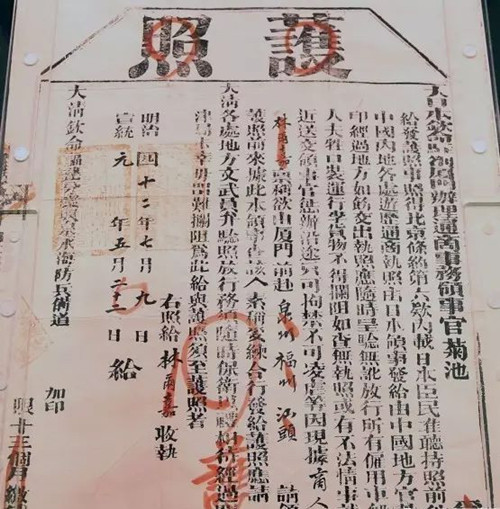 護照
大日本欽命駐劄廈門辦理通商事務領事官菊池
給發護照事照得北京條約第六欵內載日本臣民准聽持照前
中國內地各處遊歷通商執照由日本領事發給由中國地方官
印經過地方如飭交出執照應隨時呈驗無訛放行所有僱用車船
人夫牲口裝運行李貨物不得攔阻如查無執照或有不法情事
近送交領事官懲辦沿途只可拘禁不可凌虐等因現據商人
林爾嘉稟稱欲由厦門前赴泉州福州汕頭請
護照前來據此本領事查該人素稱妥練合行發給護照應請
大清各處地方文武員弁驗照放行務須隨時保衛以禮相待經過
津局卡幸毋留難攔阻爲此給與護照須至護照者
右照給林爾嘉收執
明治四十二年七月九日
宣統元年五月二十二日給
大清欽命福建分巡興泉永海防兵備道
加印
限十三個月繳